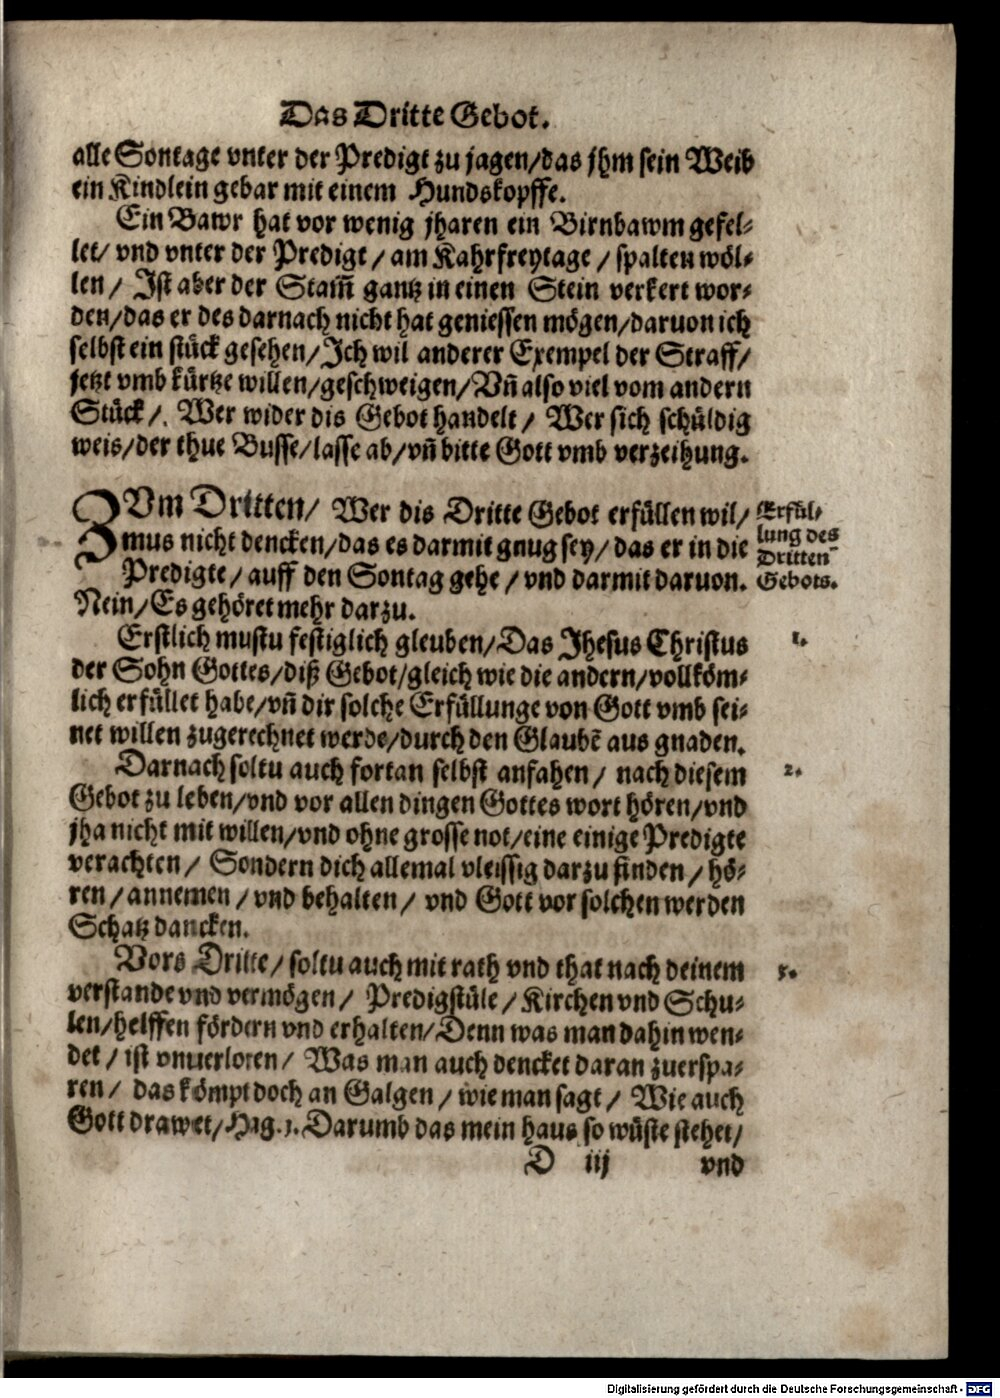 Das Dritte Gebot.
alle Sontage vnter der Predigt zu jagen/das jhm sein Weib
ein Kindlein gebar mit einem Hundskopffe.
Ein Bawr hat vor wenig jharen ein Birnbawm gefel-
let/ vnd vnter der Predigt / am Kahrfreytage / spalten wöl-
len / Ist aber der Stam̃ gantz in einen Stein verkert wor-
den/das er des darnach nicht hat geniessen mögen/daruon ich
selbst ein stück gesehen/Ich wil anderer Exempel der Straff/
jetzt vmb kürtze willen/geschweigen/Vñ also viel vom andern
Stück/. Wer wider dis Gebot handelt / Wer sich schüldig
weis/der thue Busse/lasse ab/vñ bitte Gott vmb verzeihung.
ZVm Dritten/ Wer dis Dritte Gebot erfüllen wil/
mus nicht dencken/das es darmit gnug sey/das er in die
Predigte/auff den Sontag gehe / vnd darmit daruon.
Nein/Es gehöret mehr darzu.
Erfül-
lung des
Dritten
Gebots.
Erstlich mustu festiglich gleuben/Das Jhesus Christus
der Sohn Gottes/diß Gebot/gleich wie die andern/vollköm-
lich erfüllet habe/vñ dir solche Erfüllunge von Gott vmb sei-
net willen zugerechnet werde/durch den Glaubē aus gnaden.
1.
Darnach soltu auch fortan selbst anfahen / nach diesem
Gebot zu leben/vnd vor allen dingen Gottes wort hören/vnd
jha nicht mit willen/vnd ohne grosse not/eine einige Predigte
verachten / Sondern dich allemal vleissig darzu finden / hö-
ren / annemen / vnd behalten / vnd Gott vor solchen werden
Schatz dancken.
2.
Vors Dritte/ soltu auch mit rath vnd that nach deinem
verstande vnd vermögen / Predigstüle / Kirchen vnd Schu-
len/helffen fördern vnd erhalten/Denn was man dahin wen-
det / ist vnuerloren / Was man auch dencket daran zuerspa-
ren / das kömpt doch an Galgen / wie man sagt / Wie auch
Gott drawet/Hag.1.Darumb das mein haus so wüste stehet/
3.
D iij
vnd
Digitalisierung gefördert durch die Deutsche Forschungsgemeinschaft - DFG